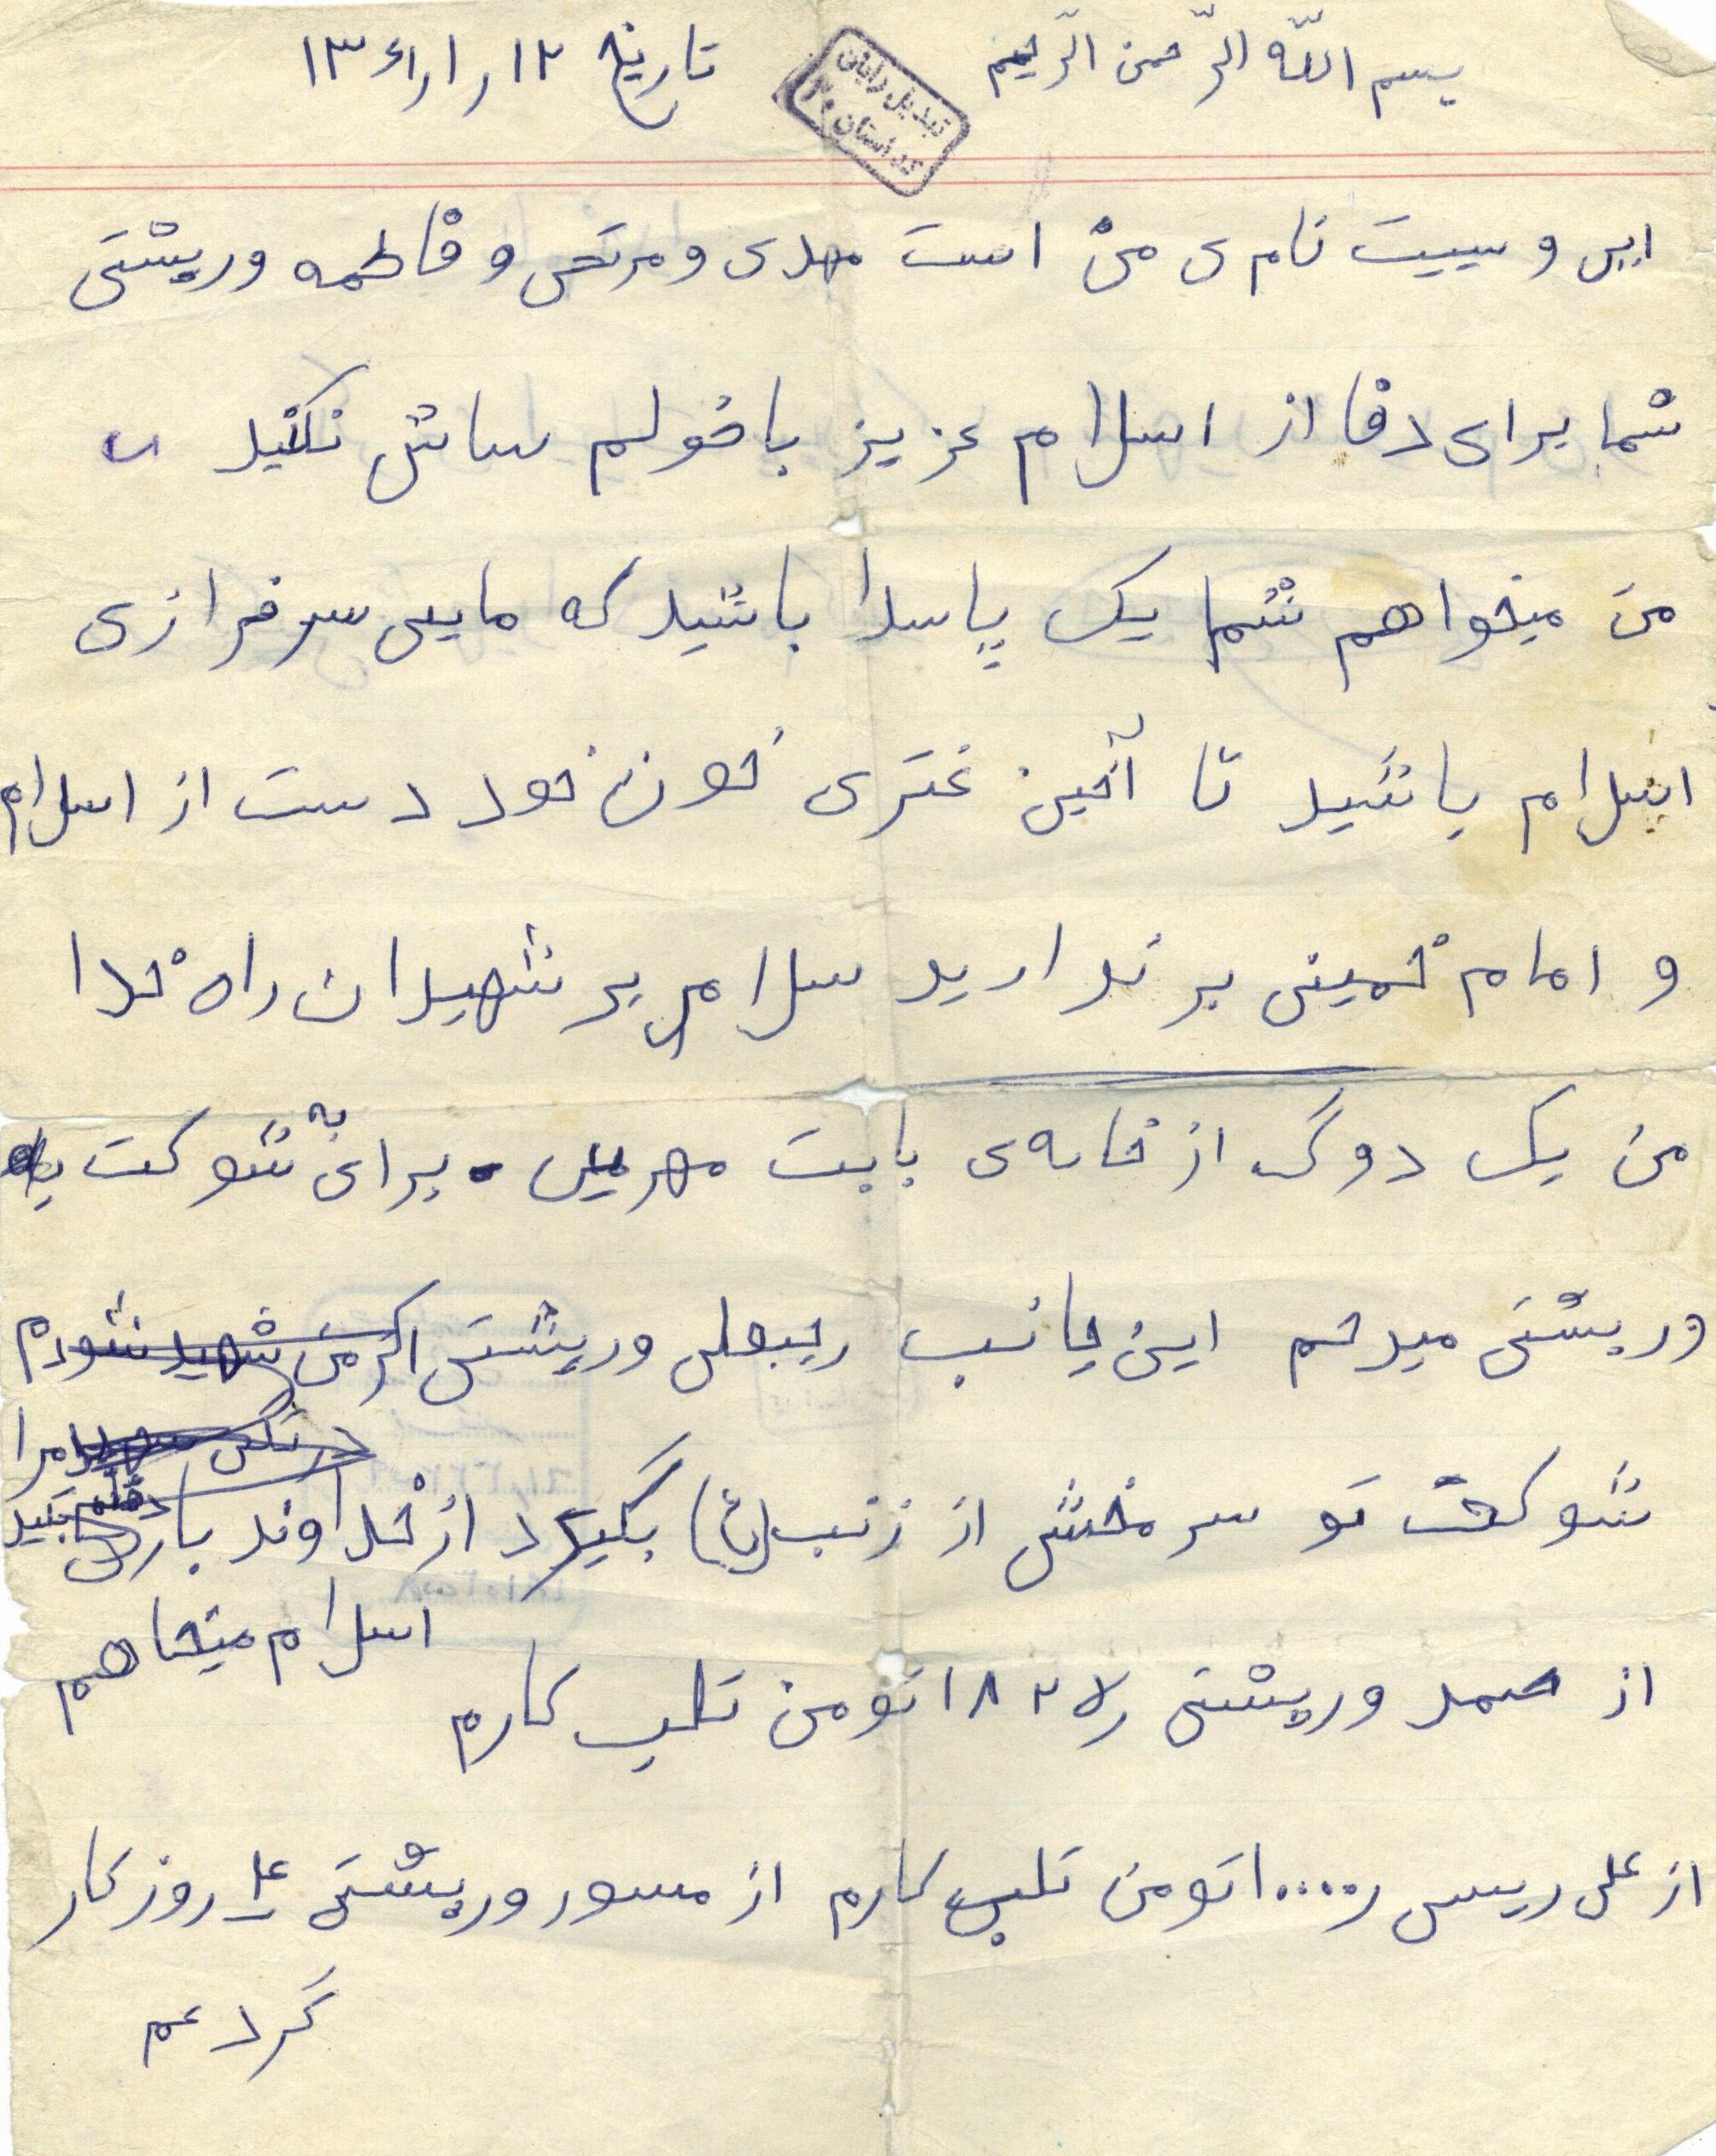 بسم اللّه الرّحمن الرّحیم
تاریخ ۱۲ر۱ر۱۳۶۱
تبدیل رایان
کد استان ۲۰
این وسییت نام ی من است مهدی و مرتضی و فاطمه ورپشتی
شما برای دفا از اسلام عزیز با ظولم ساش نکنید
من میخواهم شما یک پاسدا باشید که مایی سرفرازی
اسلام باشید تا آخین غتری خون خود دست از اسلام
و امام خمینی بر ندارید سلام بر شهیدان راه خدا
من یک دوگ از خانه ی بابت مهریی برای به شوکت
ورپشتی میدحم این جانب رجبعلی ورپشتی اگر من شهید شودم
مرا دفنم بکنید
شوکت تو سرمخشی از زنب (ع) بگیرد از خداوند باری
اسلام میخاهم
از صمد ورپشتی ۱۸۲۷ تومن تلب کارم
از علی ریسی ۱۰۰۰۰ تومن تلب کارم از مسور ورپشتی ۴ روز کار
کردعم